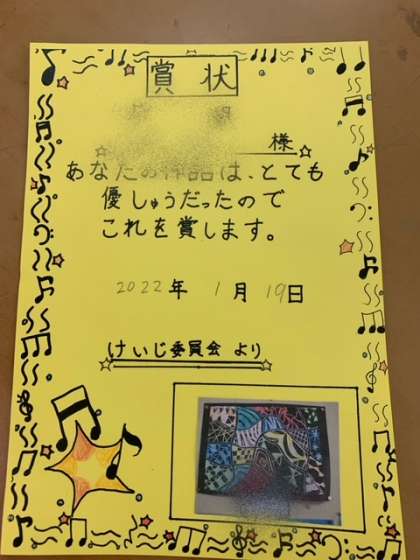 賞状
様
あなたの作品は、とても
優しゅうだったので
これを賞します。
2022年 1月 19日
けいじ委員会 より